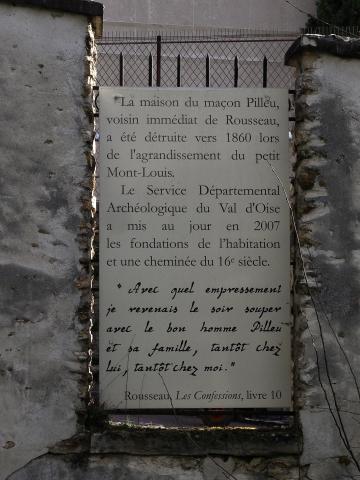 "La maison du maçon Pilleu,
voisin immédiat de Rousseau,
a été détruite vers 1860 lors
de l'agrandissement du petit
Mont-Louis.
Le Service Départemental
Archéologique du Val d'Oise
a mis au jour en 2007
les fondations de l'habitation
et une cheminée du 16e siècle.
" Avec quel empressement
je revenais le soir souper
avec le bon homme Pilleu
et sa famille, tantôt chez
lui, tantôt chez moi."
Rousseau, Les Confessions, livre 10